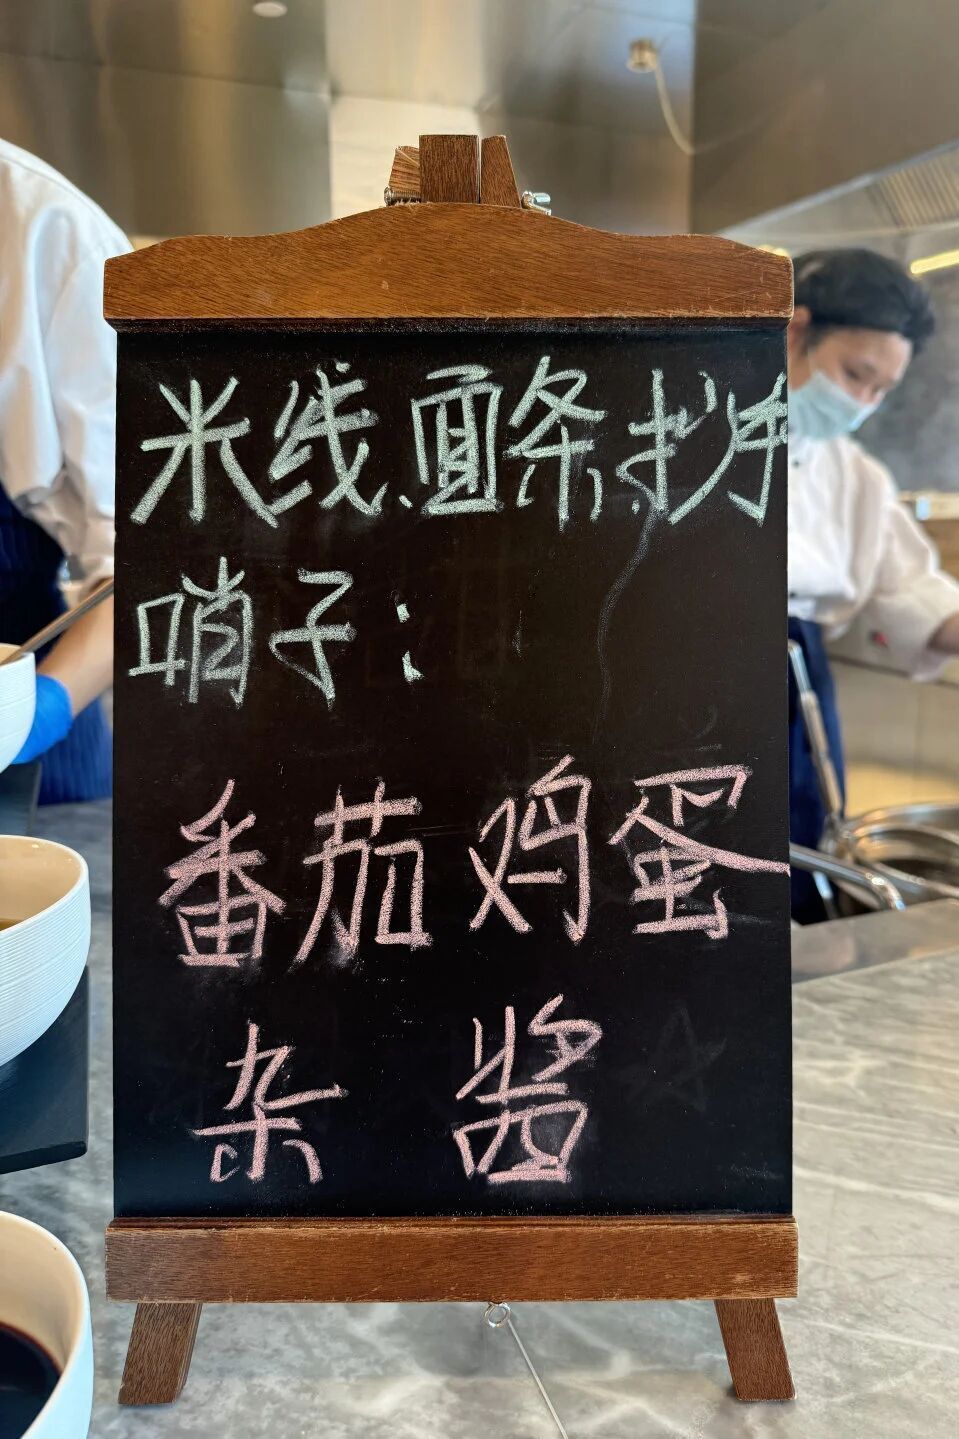 米线、面条、抄手
哨子：
番茄鸡蛋
杂酱